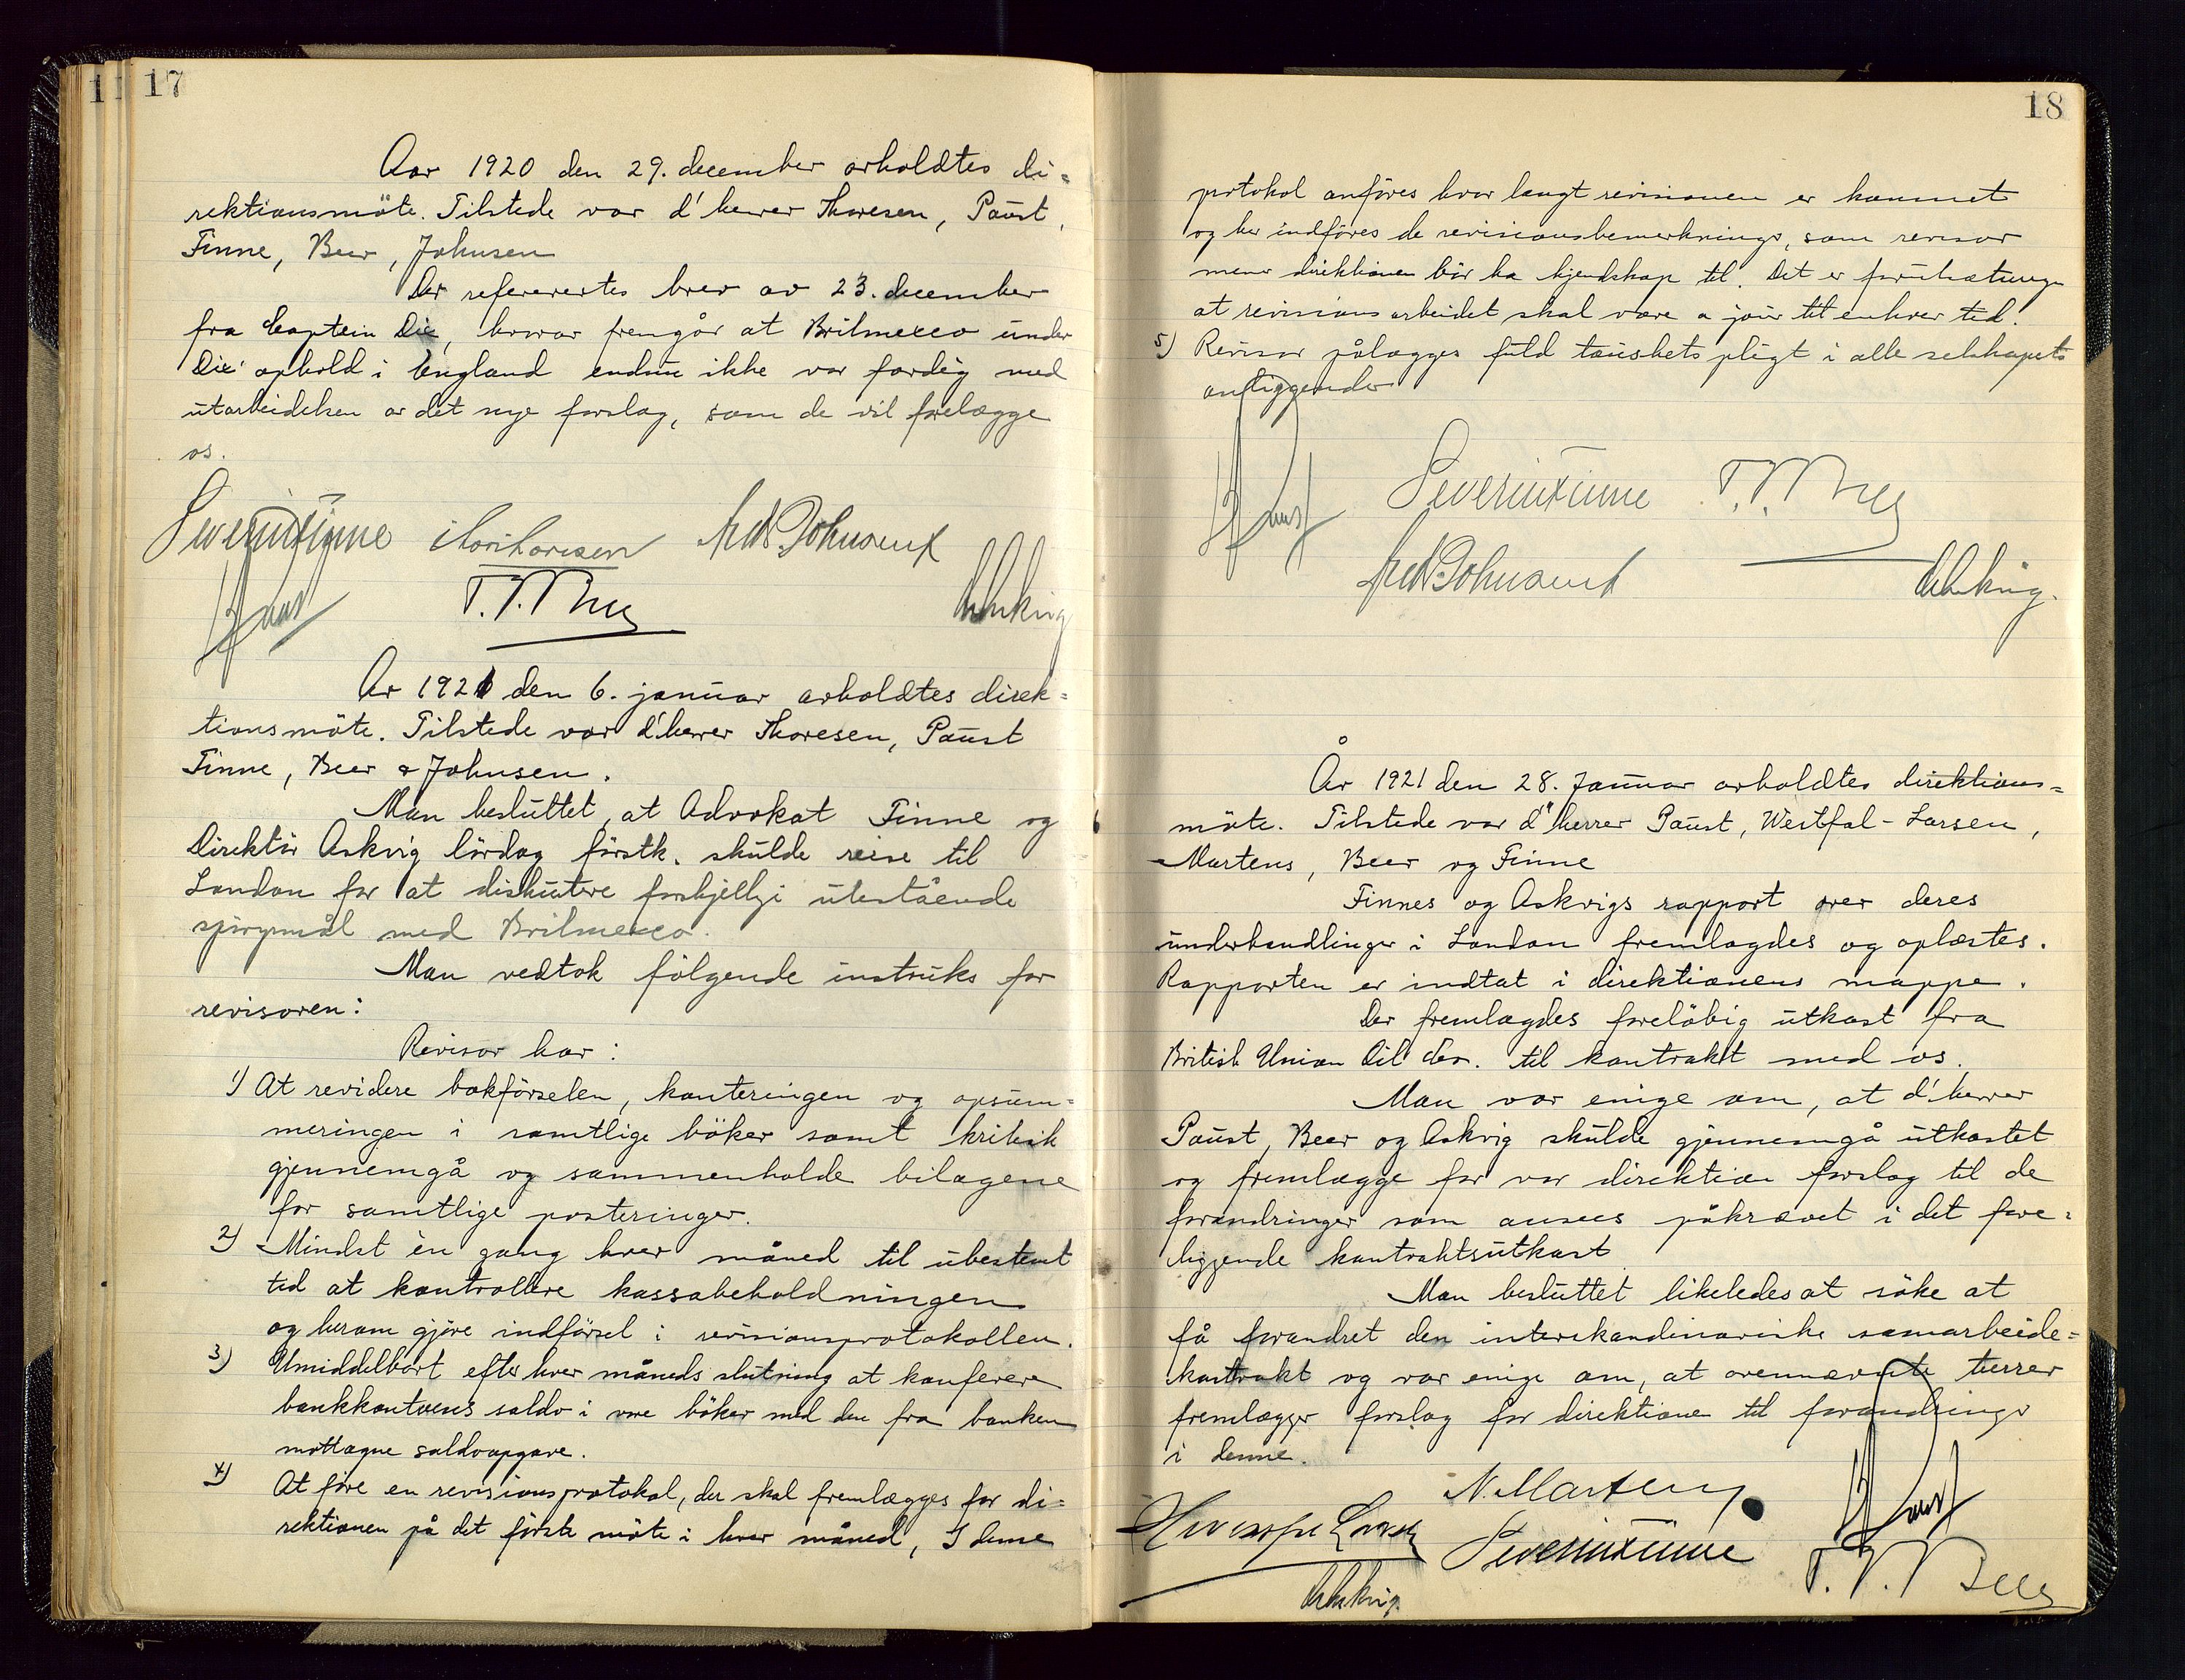 17
Aar 1920 den 29. december avholdtes di=
rektionsmöte. Tilstede var d'herrer Thoresen, Paust,
Finne, Beer, Johnsen
Der refererertes brev av 23. december
fra Captein Die, hvorav fremgår at Brilmexco under
Die' ophold i England endnu ikke var færdig med
utarbeidelsen av det nye forslag, som de vil forelægge
os.
Severin Finne Thor Thoresen Fredr Johnsen
Paust T. T. Beer Askvig
År 1921 den 6. januar avholdtes direk=
tionsmöte. Tilstede var d'herrer Thoresen, Paust
Finne, Beer & Johnsen.
Man besluttet, at Advokat Finne og
Direktör Askvig lördag förstk. skulde reise til
London for at diskutere forskjellige utestående
spörsmål med Brilmexco.
Man vedtok fölgende instruks for
revisoren:
Revisor har:
1) At revidere bokförselen, konteringen og opsum=
meringen i samtlige böker samt kritisk
gjennemgå og sammenholde bilagene
for samtlige posteringer.
2) Mindst èn gang hver måned til ubestemt
tid at kontrollere kassabeholdningen
og herom gjöre indförsel i revisionsprotokollen.
3) Umiddelbart efter hver måneds slutning at konferere
bankkontoens saldo i vore böker med den fra banken
mottagne saldoopgave.
4) At före en revisionsprotokol, der skal fremlægges for di=
rektionen på det förste möte i hver måned, I denne
18
protokol anföres hvor langt revisionen er kommet
og her indföres de revisionsbemerkninger, som revisor
mener direktionen bör ha kjendskap til. Det er forutsætningen
at revisionsarbeidet skal være a jour til enhver tid.
5) Revisor pålægges fuld taushetspligt i alle selskapets
anliggender
Paust Severin Finne T. T. Beer
Fredr Johnsen Askvig.
År 1921 den 28. Januar avholdtes direktions=
möte. Tilstede var d'herrer Paust, Westfal-Larsen,
Martens, Beer og Finne
Finnes og Askvigs rapport over deres
underhandlinger i London fremlagdes og oplæstes.
Rapporten er indtat i direktionens mappe.
Der fremlagdes foreløbig utkast fra
British Union Oil Co. til kontrakt med os.
Man var enige om, at d'herrer
Paust, Beer og Askvig skulde gjennemgå utkastet
og fremlægge for vor direktion forslag til de
forandringer som ansees påkrævet i det fore=
liggende kontraktsutkast
Man besluttet likeledes at söke at
få forandret den interskandinaviske samarbeids=
kontrakt og var enige om, at ovennævnte herrer
fremlægger forslag for direktionen til forandringer
i denne.
N. Martens Paust
Severin Finne T. T. Beer
Askvig.